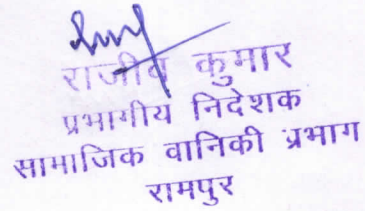 राजीव कुमार
प्रभागीय निदेशक
सामाजिक वानिकी प्रभाग
रामपुर